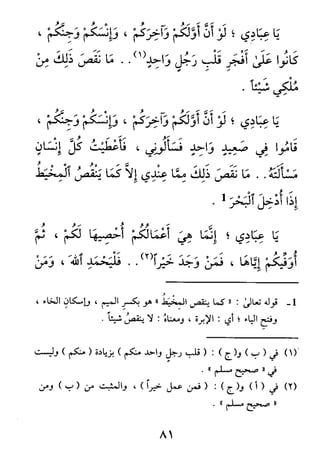 يَا عِبَادِي ؛ لَوْ أَنَّ أَوَّلَكُمْ وَآخِرَكُمْ ، وَإِنْسَكُمْ وَجِنَّكُمْ ،
كَانُوا عَلَى أَفْجَرِ قَلْبِ رَجُلٍ وَاحِدٍ(١) . . مَا نَقَصَ ذَلِكَ مِنْ
مُلْكِي شَيْئاً .
يَا عِبَادِي ؛ لَوْ أَنَّ أَوَّلَكُمْ وَآخِرَكُمْ ، وَإِنْسَكُمْ وَجِنَّكُمْ ،
قَامُوا فِي صَعِيدٍ وَاحِدٍ فَسَأَلُونِي ، فَأَعْطَيْتُ كُلَّ إِنْسَانٍ
مَسْأَلَتَهُ . . مَا نَقَصَ ذَلِكَ مِمَّا عِنْدِي إِلاَّ كَمَا يَنْقُصُ ٱلْمِخْيَطُ
إِذَا أُدْخِلَ ٱلْبَحْرَ 1 .
يَا عِبَادِي ؛ إِنَّمَا هِيَ أَعْمَالُكُمْ أُحْصِيهَا لَكُمْ ، ثُمَّ
أُوَفِّيكُمْ إِيَّاهَا ، فَمَنْ وَجَدَ خَيْراً(٢) . . فَلْيَحْمَدِ ٱللهَ ، وَمَنْ
1- قوله تعالىٰ : « كما ينقص المِخْيَطُ » هو بكسر الميم ، وإسكان الخاء ،
وفتح الياء ؛ أي : الإبرة ، ومعناهُ : لا ينقصُ شيئاً .
(١) في ( ب ) و( ج ) : ( قلب رجلٍ واحد منكم ) بزيادة ( منكم ) وليست
في « صحيح مسلم » .
(٢) في ( أ ) و( ج ) : ( فمن عمل خيراً ) ، والمثبت من ( ب ) ومن
« صحيح مسلم » .
٨١